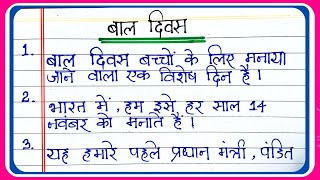 बाल दिवस
1. बाल दिवस बच्चों के लिए मनाया
जाने वाला एक विशेष दिन है।
2. भारत में, हम इसे हर साल 14
नवंबर को मनाते हैं।
3. यह हमारे पहले प्रधान मंत्री, पंडित